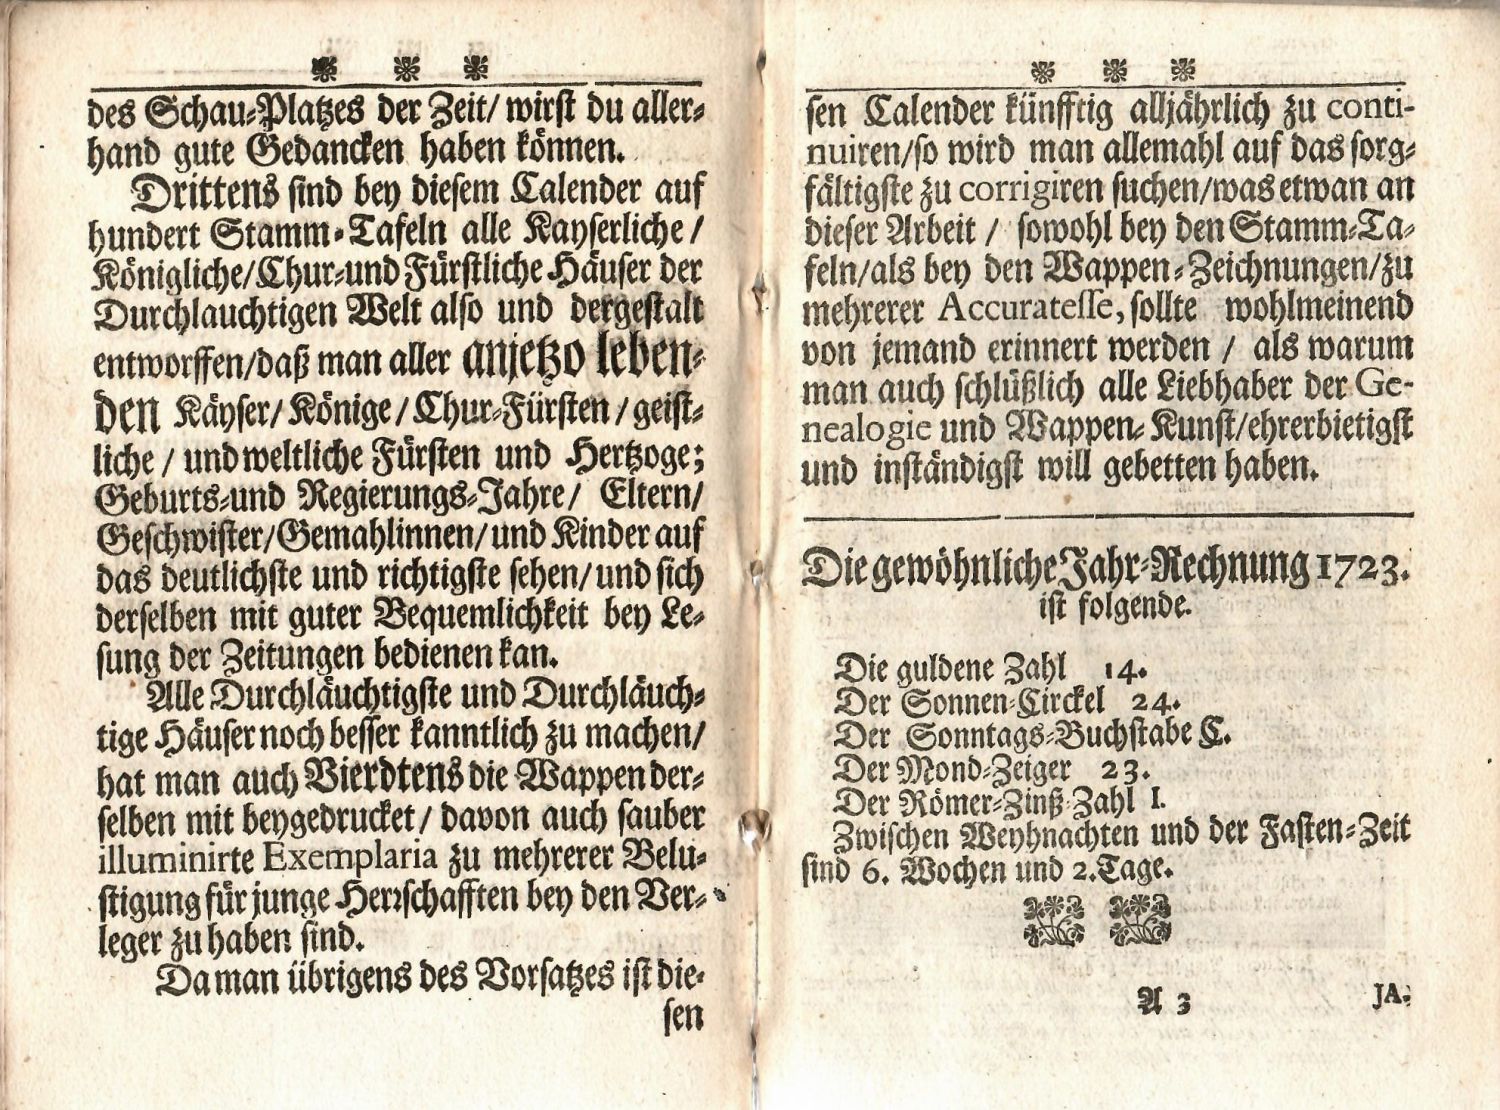 des Schau-Platzes der Zeit/ wirst du aller-
hand gute Gedancken haben können.
Drittens sind bey diesem Calender auf
hundert Stamm-Tafeln alle Kayserliche/
Königliche/Chur-und Fürstliche Häuser der
Durchlauchtigen Welt also und dergestalt
entworffen/daß man aller anjetzo leben-
den Käyser/Könige/Chur-Fürsten/geist-
liche/ und weltliche Fürsten und Hertzoge;
Geburts-und Regierungs-Jahre/ Eltern/
Geschwister/Gemahlinnen/und Kinder auf
das deutlichste und richtigste sehen/und sich
derselben mit guter Bequemlichkeit bey Le-
sung der Zeitungen bedienen kan.
Alle Durchläuchtigste und Durchläuch-
tige Häuser noch besser kanntlich zu machen/
hat man auch Vierdtens die Wappen der-
selben mit beygedrucket/ davon auch sauber
illuminirte Exemplaria zu mehrerer Belu-
stigung für junge Herrschafften bey den Ver-
leger zu haben sind.
Da man übrigens des Vorsatzes ist die-
sen
sen Calender künfftig alljährlich zu conti-
nuiren/so wird man allemahl auf das sorg-
fältigste zu corrigiren suchen/was etwan an
dieser Arbeit/ sowohl bey den Stamm-Ta-
feln/als bey den Wappen-Zeichnungen/zu
mehrerer Accuratesse, sollte wohlmeinend
von jemand erinnert werden/ als warum
man auch schlüßlich alle Liebhaber der Ge-
nealogie und Wappen-Kunst/ehrerbietigst
und inständigst will gebetten haben.
Die gewöhnliche Jahr-Rechnung 1723.
ist folgende.
Die guldene Zahl 14.
Der Sonnen-Circkel 24.
Der Sonntags-Buchstabe C.
Der Mond-Zeiger 23.
Der Römer-Zinß-Zahl I.
Zwischen Weyhnachten und der Fasten-Zeit
sind 6. Wochen und 2. Tage.
A 3 JA.